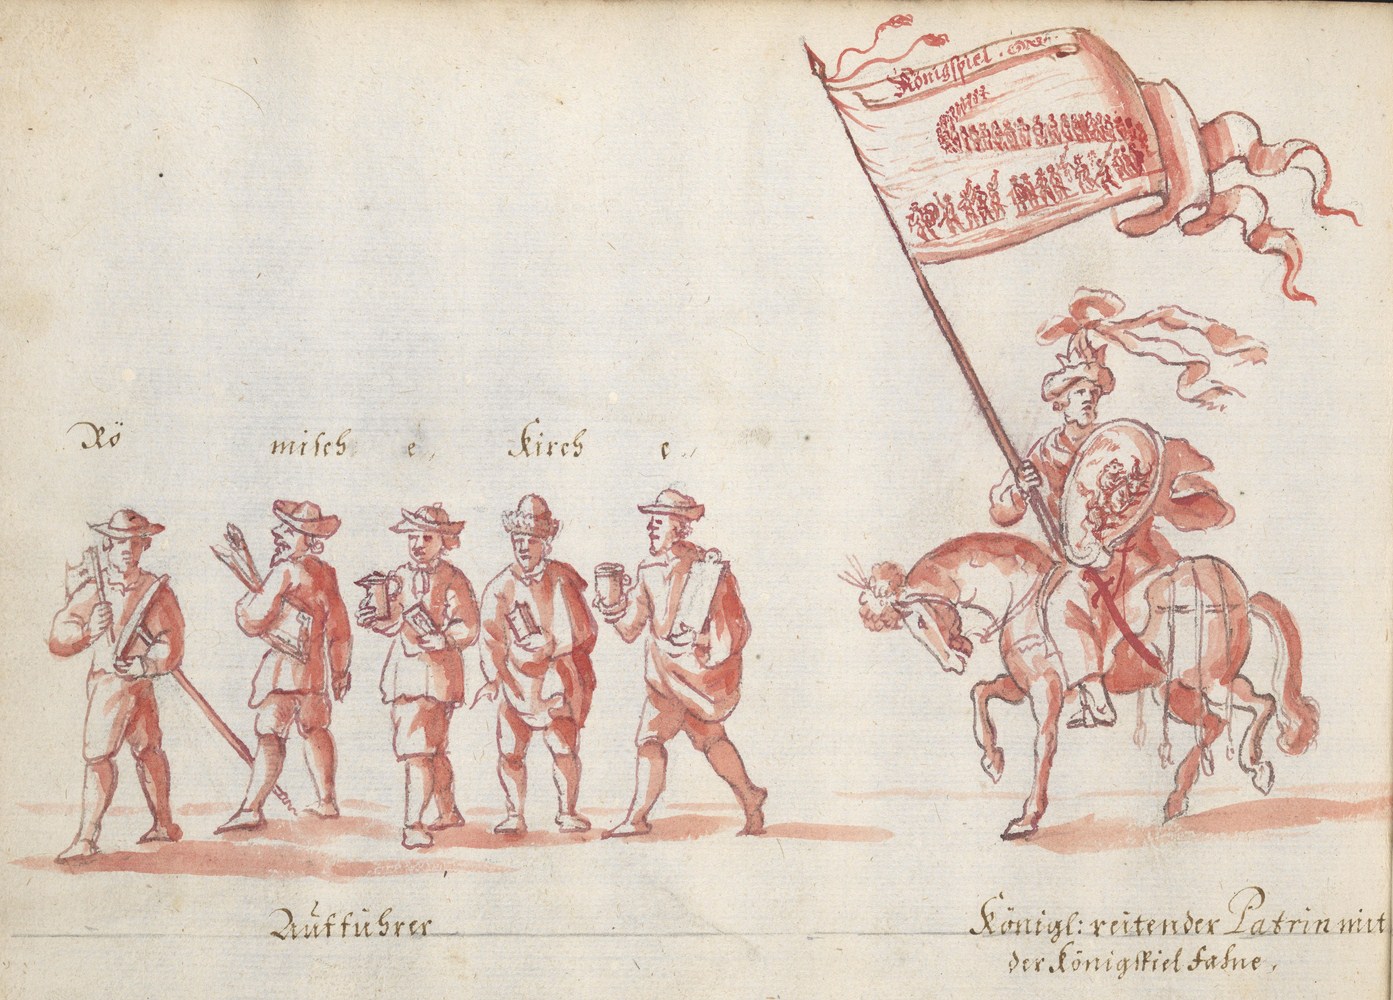 Königspiel.
Rö misch e, Kirch e.,
Aufführer
Königl: reitender Patrin mit
der Königspiel Fahne.